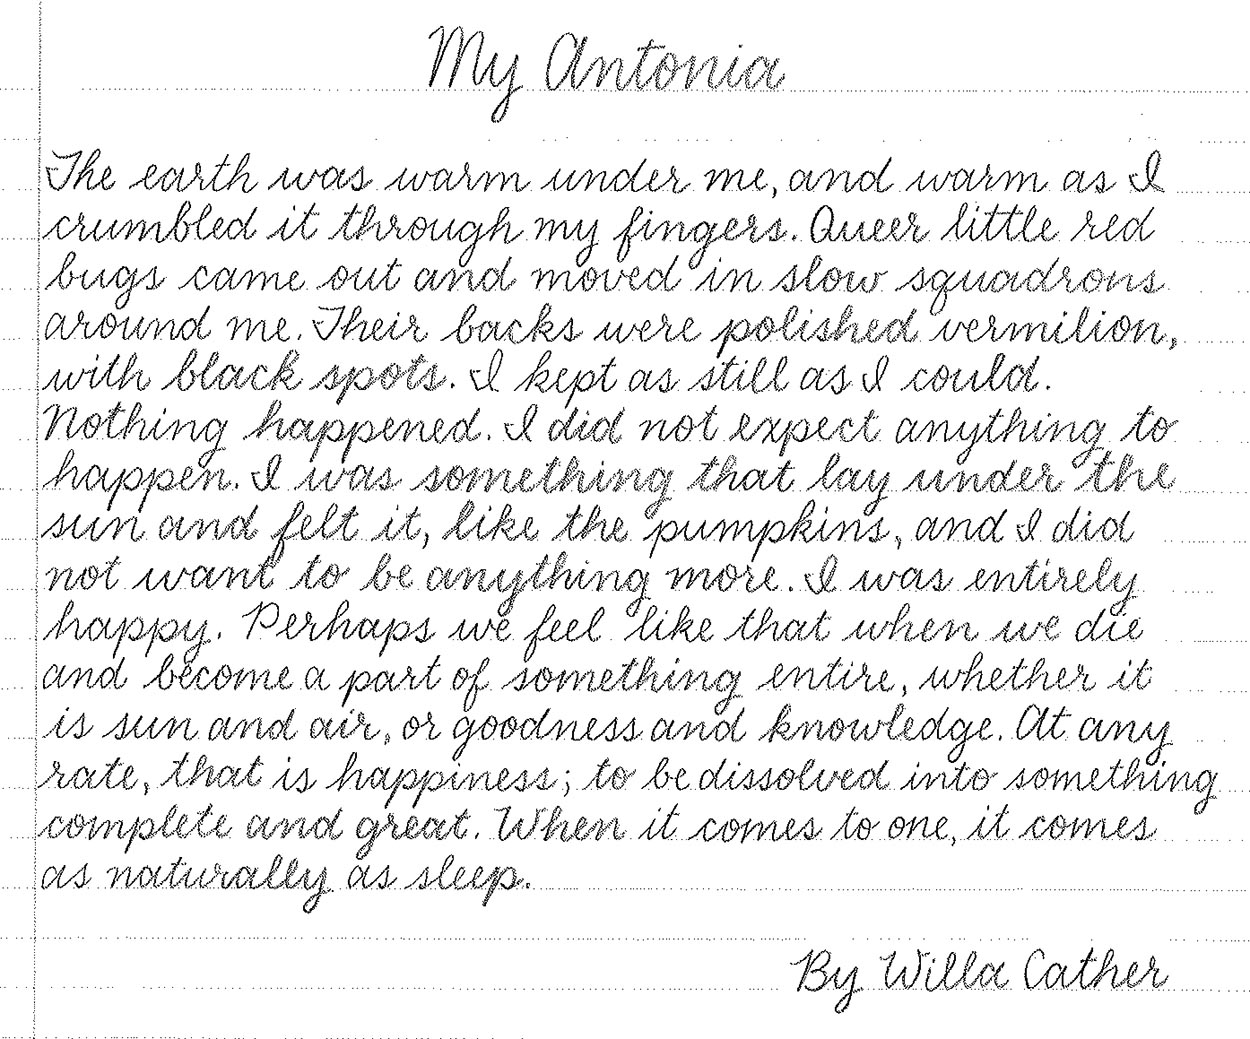 My Antonia
The earth was warm under me, and warm as I
crumbled it through my fingers. Queer little red
bugs came out and moved in slow squadrons
around me. Their backs were polished vermilion,
with black spots. I kept as still as I could.
Nothing happened. I did not expect anything to
happen. I was something that lay under the
sun and felt it, like the pumpkins, and I did
not want to be anything more. I was entirely
happy. Perhaps we feel like that when we die
and become a part of something entire, whether it
is sun and air, or goodness and knowledge. At any
rate, that is happiness; to be dissolved into something
complete and great. When it comes to one, it comes
as naturally as sleep.
By Willa Cather